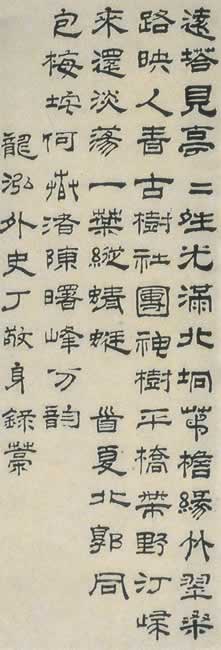 遠塔見亭二姓光滿北坰茆檐緣竹翠桑
路映人青古樹社團神樹平橋帶野汀
來還淡蕩一葉縱蜻蜓 首夏北郭同
包梅垞何渚陳曙峰分韵
龍泓外史丁敬身錄藁